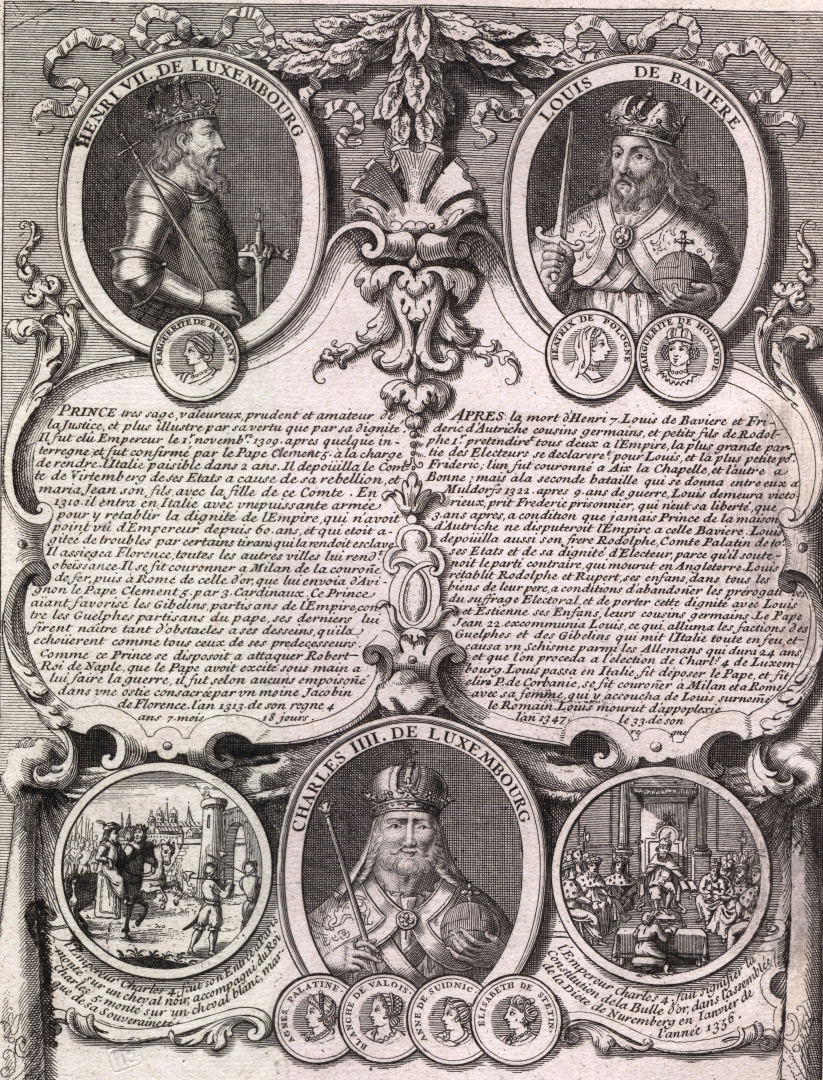 HENRI VII. DE LUXEMBOURG
MARGUERITE DE BRABANT
LOUIS DE BAVIERE
BEATRIX DE POLOGNE
MARGUERITE DE HOLLANDE
PRINCE tres sage, valeureux, prudent et amateur de
la Justice, et plus illustre par sa vertu que par sa dignité.
Il fut elû Empereur le 1.r novemb.re 1309. apres quelque in-
terregne et fut confirmé par le Pape Clement 5. à la charge
de rendre l'Italie paisible dans 2 ans. Il depoüilla le Com-
te de Virtemberg de ses Etats a cause de sa rebellion, et
maria Jean son fils avec la fille de ce Comte. En
1310. il entra en Italie avec vne puissante armée
pour y retablir la dignité de l'Empire, qui n'avoit
point vû d'Empereur depuis 60. ans, et qui etoit a-
gitée de troubles par certains tirans qui la rendoit esclave
Il assiegea Florence, toutes les autres villes lui rend.t
obeissance. Il se fit couronner a Milan de la couroñe
de fer, puis à Rome de celle d'or, que lui envoia d'Avi-
gnon le Pape Clement 5. par 3. Cardinaux. Ce Prince
aiant favorisé les Gibelins, partisans de l'Empire, con-
tre les Guelphes partisans du pape, ses derniers lui
firent naitre tant d'obstacles a ses desseins, quils
echoüerent comme tous ceux de ses predecesseurs.
Comme ce Prince se disposoit a attaquer Robert
Roi de Naple, que le Pape avoit excité sous main a
lui faire la guerre, il fut selon aucuns empoisoñé
dans vne ostie consacrée par vn moine Jacobin
de Florence, l'an 1313. de son regne 4
ans 7. mois 18 jours.
APRES la mort d'Henri 7. Louis de Baviere et Fri-
deric d'Autriche cousins germains, et petits fils de Rodol-
phe 1.r pretendire.t tous deux a l'Empire, la plus grande par-
tie des Electeurs se declarere.t pour Louis, et la plus petite p.r
Frideric; l'un fut couronné a Aix la Chapelle, et l'autre a
Bonne; mais a la seconde bataille qui se donna entre eux a
Muldorfs 1322. apres 9. ans de guerre, Louis demeura victo-
rieux, prit Frederic prisonnier, qui n'eut sa liberté, que
3. ans apres, a condition que jamais Prince de la maison
d'Autriche ne disputeroit l'Empire a celle Baviere. Louis
depoüilla aussi son frere Rodolphe, Comte Palatin de to.s
ses Etats et de sa dignité d'Electeur, parce qu'il soute-
noit le parti contraire, qui mourut en Angleterre. Louis
rétablit Rodolphe et Rupert, ses enfans, dans tous les
biens de leur pere, a conditions d'abandoner les prerogati.
du suffrage Electoral, et de porter cette dignité avec Louis
et Estienne ses Enfans, leurs cousins germans. Le Pape
Jean 22. excommunia Louis, ce qui alluma les factions des
Guelphes et des Gibelins qui mit l'Italie toute en feu, et
causa vn Schisme parmi les Allemans qui dura 24 ans
et que l'on proceda a l'election de Charl.s 4 de Luxem-
bourg. Louis passa en Italie, fit déposer le Pape, et fit
elire P. de Corbanie, se fit couroñer a Milan et a Rome
avec sa femme, qui y accoucha de Louis surnomé
le Romain. Louis mourut d'appoplexie
l'an 1347 le 33. de son
regne
CHARLES IIII. DE LUXEMBOURG
AGNES PALATINE
BLANCHE DE VALOIS
ANNE DE SUIDNIC
ELISABETH DE STETIN
l'Empereur Charles 4. fait son Entrée a Paris
monté sur un cheval noir, accompagné du Roi
Charles 5. monté sur un cheval blanc, mar-
que de sa Souveraineté
l'Empereur Charles 4. fait signifier la
Constitution de la Bulle d'or, dans l'assemblée
de la Diete de Nuremberg en Janvier de
l'année 1356.